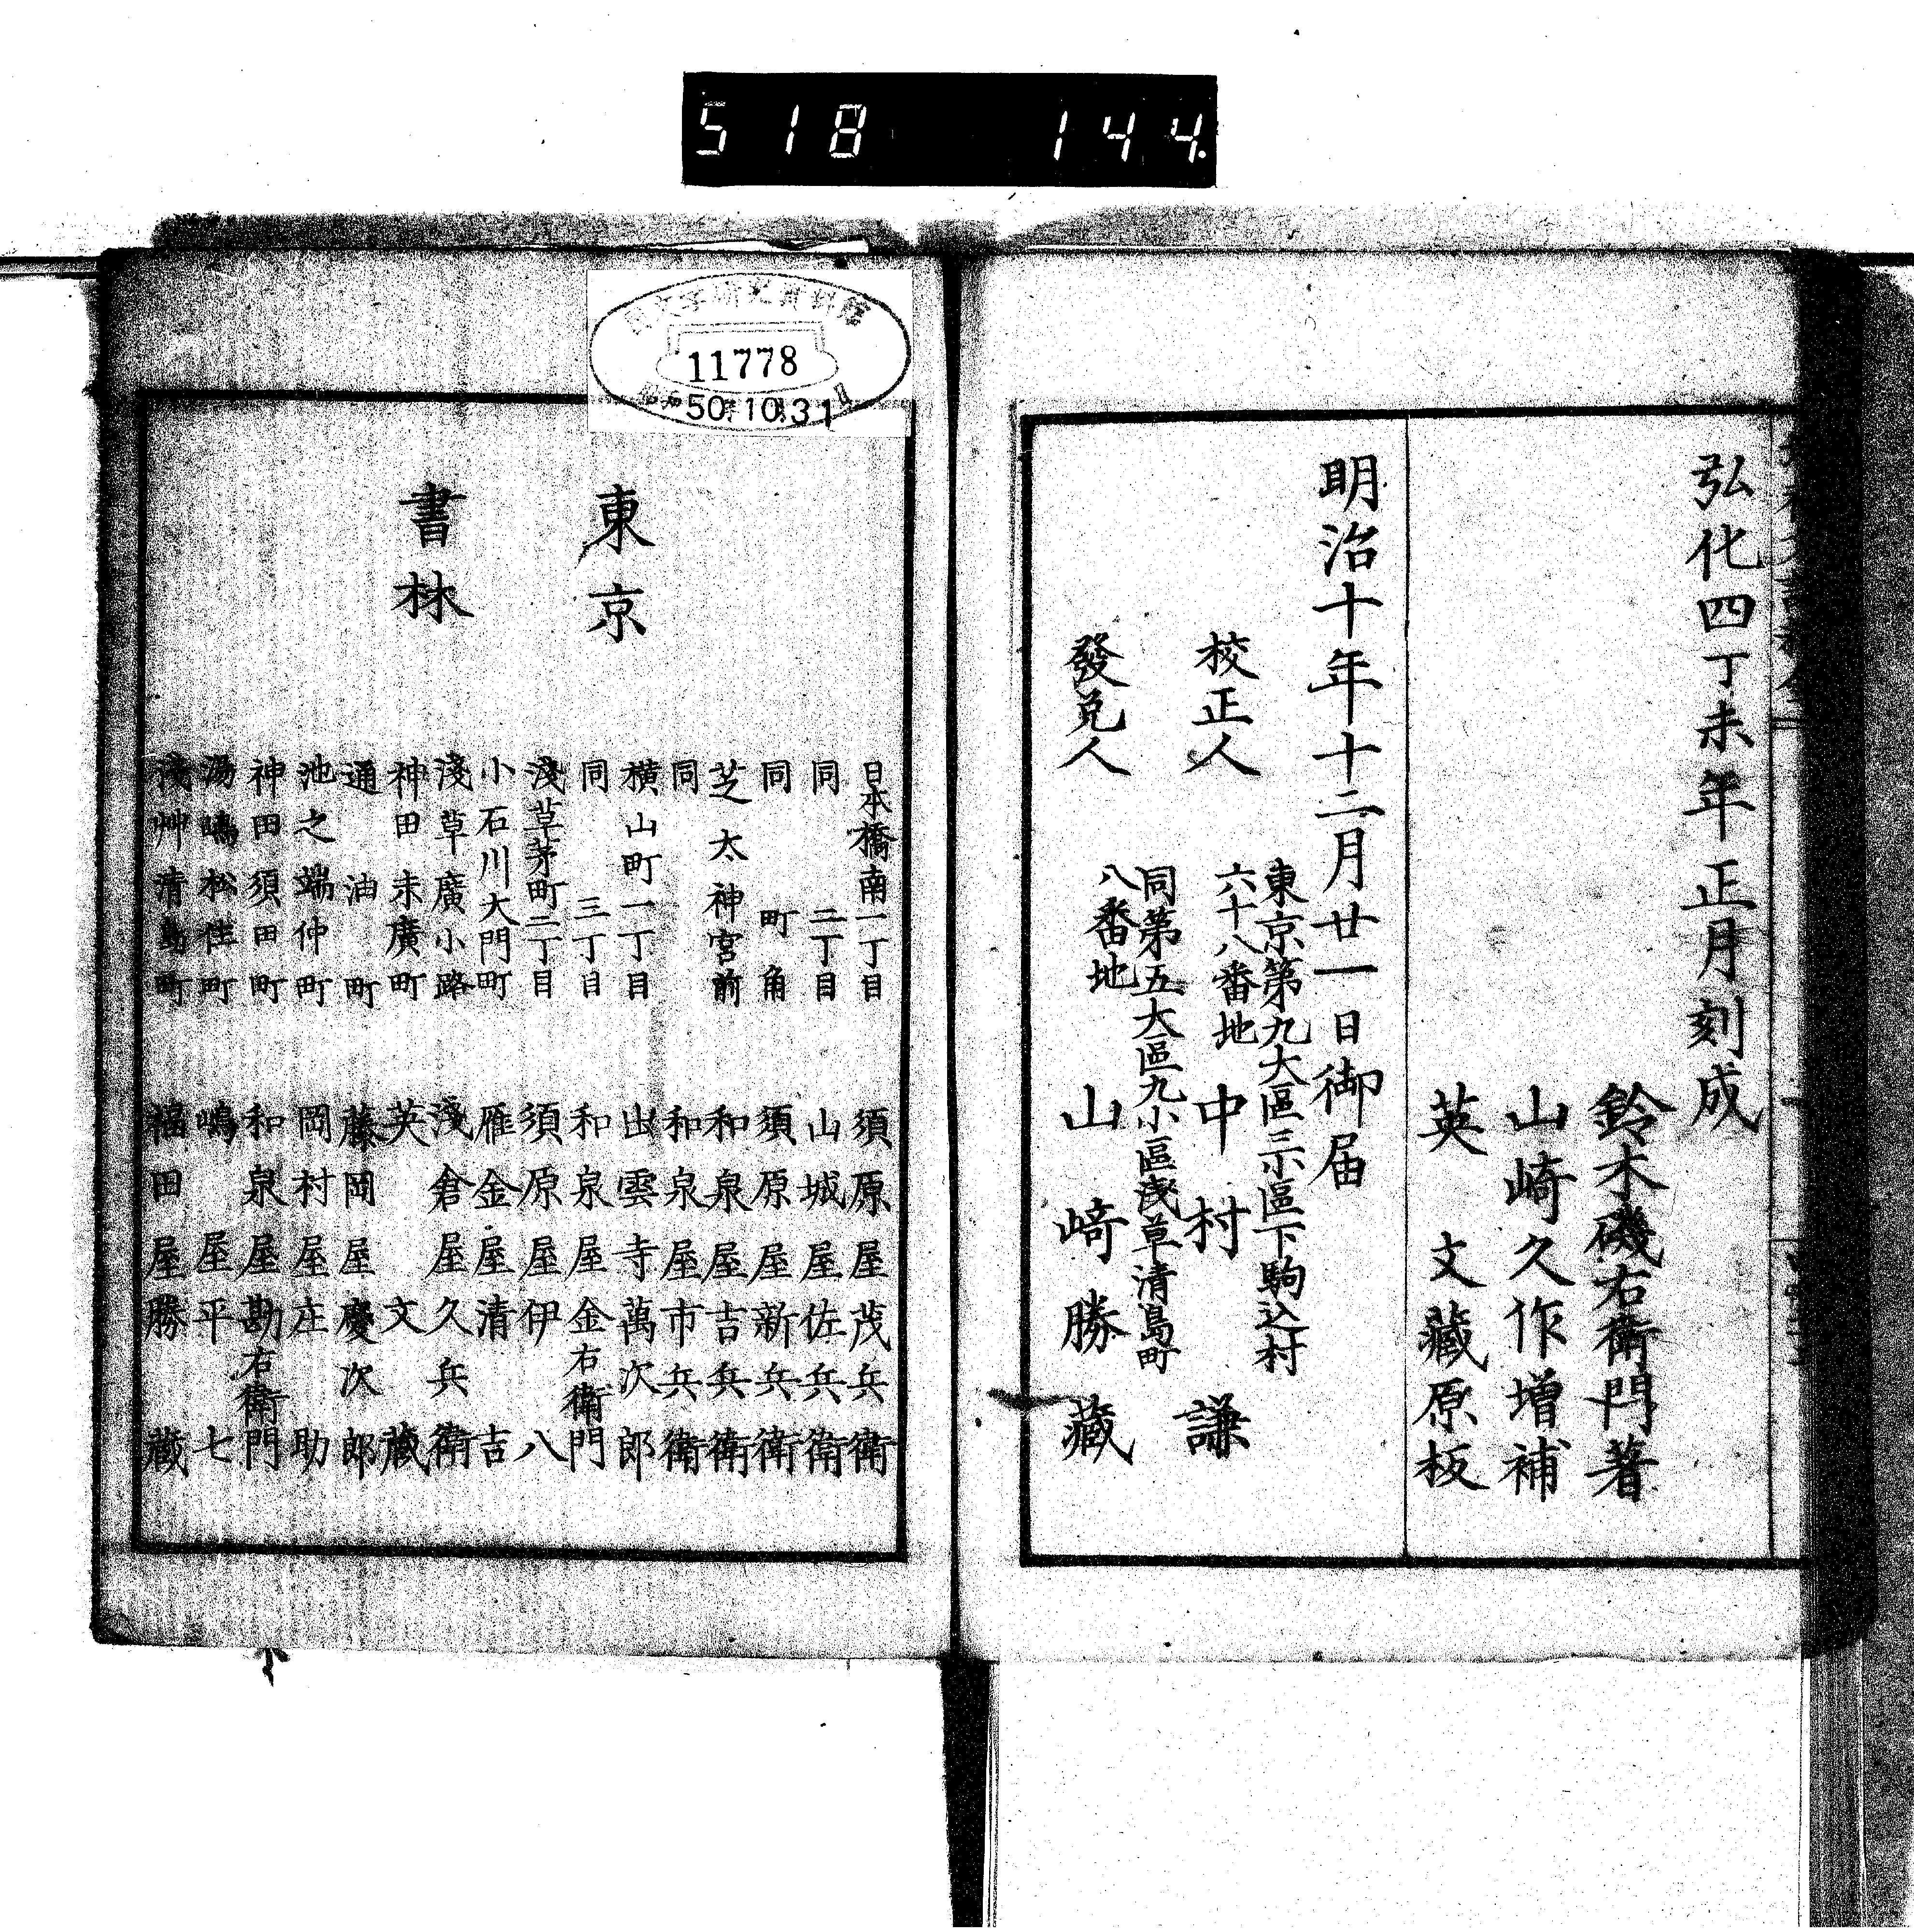 518 144
弘化四丁未年正月刻成
鈴木磯右衛門著
山崎久作増補
英文藏原板
明治十年十二月廿一日御届
東京第九大區三小區下駒込村
六十八番地
校正人 中村謙
同第五大區九小區淺草清島町
八番地
發兌人 山崎勝藏
11778
50.10.31
東京
書林
日本橋南一丁目 須原屋茂兵衛
同 二丁目 山城屋佐兵衛
同 町角 須原屋新兵衛
芝太神宮前 和泉屋吉兵衛
同 和泉屋市兵衛
横山町一丁目 出雲寺萬次郎
同 三丁目 和泉屋金右衛門
淺草茅町二丁目 須原屋伊八
小石川大門町 雁金屋清吉
淺草廣小路 淺倉屋久兵衛
神田末廣町 英文藏
通油町 藤岡屋慶次郎
池之端仲町 岡村屋庄助
神田須田町 和泉屋勘右衛門
湯嶋松住町 嶋屋平七
淺艸清島町 福田屋勝藏